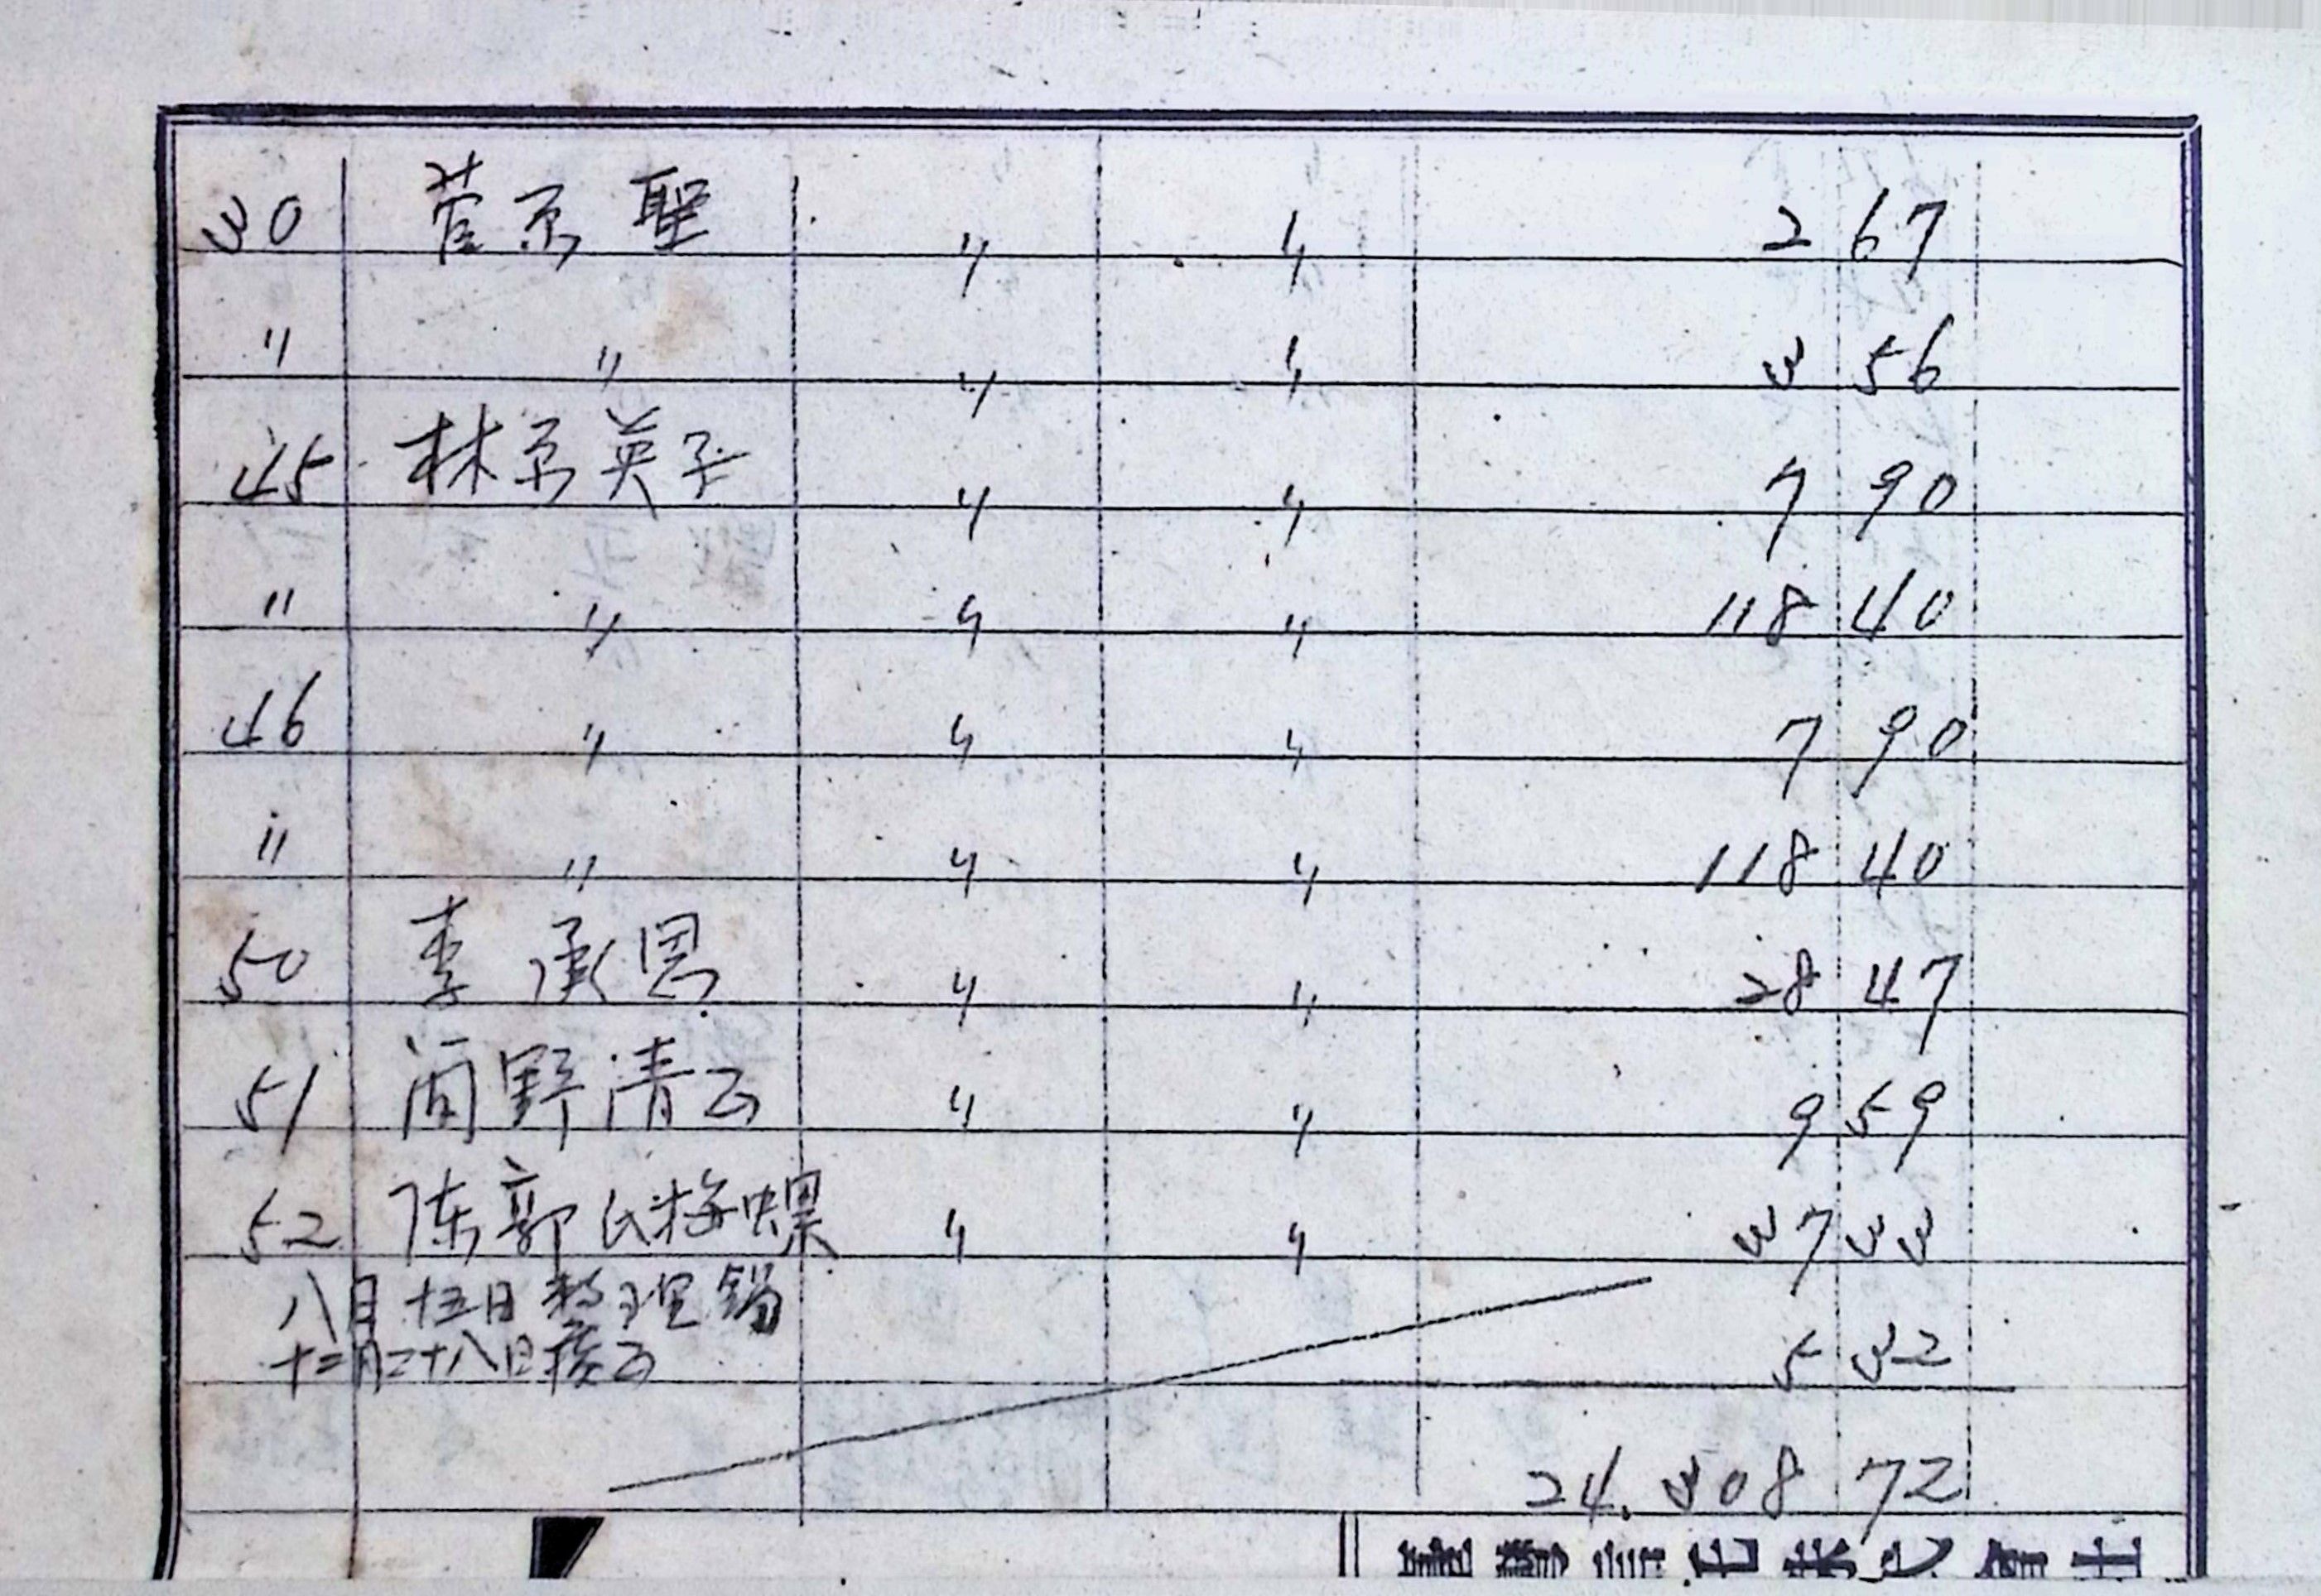 30 菅京聖 〃 〃 2 67
〃 〃 〃 〃 3 56
45 林京英子 〃 〃 7 90
〃 〃 〃 〃 118 40
46 〃 〃 〃 7 90
〃 〃 〃 〃 118 40
50 李承恩 〃 〃 28 47
51 简野清云 〃 〃 9 59
52 陈郭氏梅螺 〃 〃 37 33
八月十五日整理
十二月二十八日 5 32
24.308 72